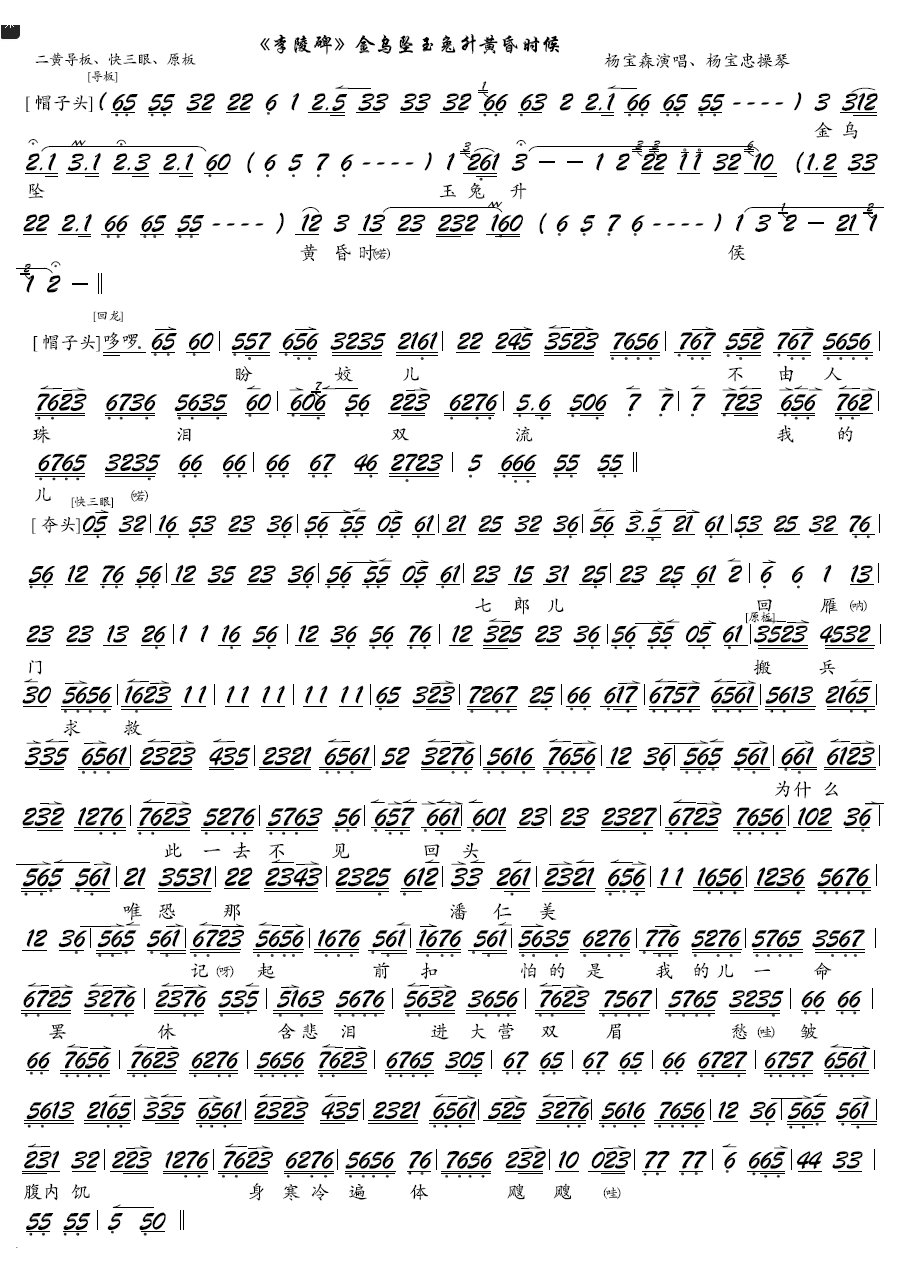 《李陵碑》金乌坠玉兔升黄昏时候
二黄导板、快三眼、原板
杨宝森演唱、杨宝忠操琴
[导板]
[帽子头] ( 65 55 32 22 6 1 2.5 33 33 32 1 66 63 2 2.1 66 65 55 - - - - ) 3 312
金 乌
2.1 3.1 2.3 2.1 60 ( 6 5 7 6 - - - - ) 1 3 261 3 - - 1 2 2 2 22 11 32 6 10 (1.2 33
坠 玉 兔 升
22 2.1 66 65 55 - - - - ) 12 3 13 23 232 160 ( 6 5 7 6 - - - - ) 1 3 1 2 - 21 2 1
黄 昏 时(喏) 候
2 1 2 - ‖
[回龙]
[帽子头] 哆啰. 65 60 | 557 656 3235 2161 | 22 245 3523 7656 | 767 552 767 5656 |
盼 姣 儿 不 由 人
7623 6736 5635 60 | 7 606 56 223 6276 | 5.6 506 7 7 | 7 723 656 762 |
珠 泪 双 流 我 的
6765 3235 66 66 | 66 67 46 2723 | 5 666 55 55 ‖
儿 (喏)
[快三眼]
[夺头] 05 32 | 16 53 23 36 | 56 55 05 61 | 21 25 32 36 | 56 3.5 21 61 | 53 25 32 76 |
56 12 76 56 | 12 35 23 36 | 56 55 05 61 | 23 15 31 25 | 23 25 61 2 | 6 6 1 13 |
七 郎 儿 回 雁 (呐)
[原板]
23 23 13 26 | 1 1 16 56 | 12 36 56 76 | 12 325 23 36 | 56 55 05 61 | 3523 4532 |
门 搬 兵
30 5656 | 1623 11 | 11 11 | 11 11 | 65 323 | 7267 25 | 66 617 | 6757 6561 | 5613 2165 |
求 救
335 6561 | 2323 435 | 2321 6561 | 52 3276 | 5616 7656 | 12 36 | 565 561 | 661 6123 |
为什 么
232 1276 | 7623 5276 | 5763 56 | 657 661 | 601 23 | 23 2327 | 6723 7656 | 102 36 |
此 一 去 不 见 回 头
565 561 | 21 3531 | 22 2343 | 2325 612 | 33 261 | 2321 656 | 11 1656 | 1236 5676 |
唯 恐 那 潘 仁 美
12 36 | 565 561 | 6723 5656 | 1676 561 | 1676 561 | 5635 6276 | 776 5276 | 5765 3567 |
记 (呀) 起 前 扣 怕 的 是 我 的 儿 一 命
6725 3276 | 2376 535 | 5163 5676 | 5632 3656 | 7623 7567 | 5765 3235 | 66 66 |
罢 休 含 悲 泪 进 大 营 双 眉 愁 (哇) 皱
66 7656 | 7623 6276 | 5656 7623 | 6765 305 | 67 65 | 67 65 | 66 6727 | 6757 6561 |
5613 2165 | 335 6561 | 2323 435 | 2321 6561 | 525 3276 | 5616 7656 | 12 36 | 565 561 |
231 32 | 223 1276 | 7623 6276 | 5656 76 | 7656 232 | 10 023 | 77 77 | 6 665 | 44 33 |
腹内 饥 身 寒 冷 遍 体 飕 飕 (哇)
55 55 | 5 50 ‖